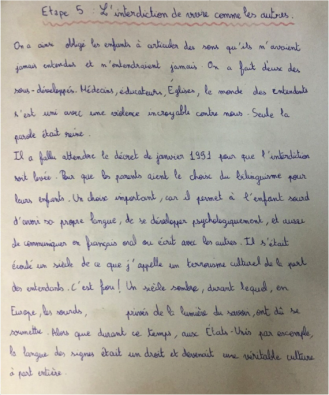 Etape 5 : L'interdiction de vivre comme les autres.
On a ainsi obligé les enfants à articuler des sons qu'ils n'avaient
jamais entendus et n'entendraient jamais. On a fait d'eux des
sous-développés. Médecins, éducateurs, Églises, le monde des entendants
s'est uni avec une violence incroyable contre nous. Seule la
parole était reine.
Il a fallu attendre le décret de janvier 1991 pour que l'interdiction
soit levée. Pour que les parents aient le choix du bilinguisme pour
leurs enfants. Un choix important, car il permet à l'enfant sourd
d'avoir sa propre langue, de se développer psychologiquement, et aussi
de communiquer en français oral ou écrit avec les autres. Il s'était
écoulé un siècle de ce que j'appelle un terrorisme culturel de la part
des entendants. C'est fou! Un siècle sombre, durant lequel, en
Europe, les sourds, privés de la lumière du savoir, ont dû se
soumettre. Alors que durant ce temps, aux Etats-Unis par exemple,
la langue des signes était un droit et devenait une véritable culture
à part entière.